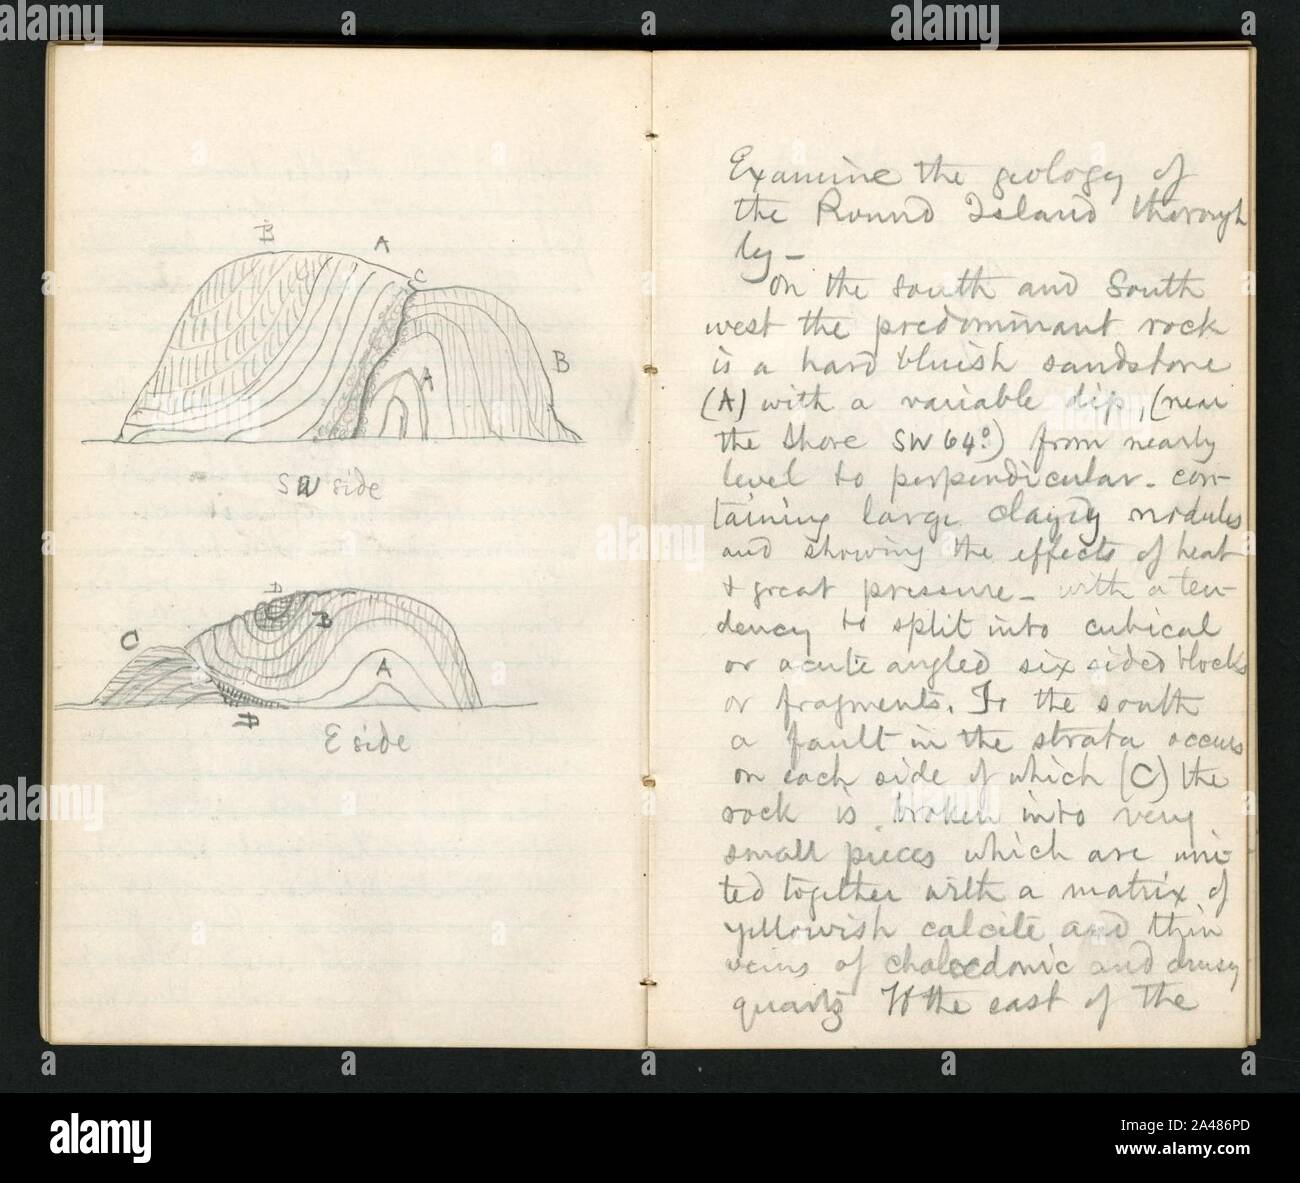 B
A
C
B
A
SW side
D
B
C
A
D
E side
Examine the geology of
the Round Island thorough
ly-
On the south and South
west the predominant rock
is a hard bluish sandstone
(A) with a variable dip, (near
the shore SW 64°) from nearly
level to perpendicular - con-
taining large clayey nodules
and showing the effects of heat
& great pressure - with a ten-
dency to split into cubical
or acute angled six sided blocks
or fragments. To the south
a fault in the strata occurs
on each side of which (C) the
rock is broken into very
small pieces which are uni-
ted together with a matrix of
yellowish calcite and thin
veins of chalcedonic and drusy
quartz To the east of the
alamy
Image ID: 2A486PD
www.alamy.com